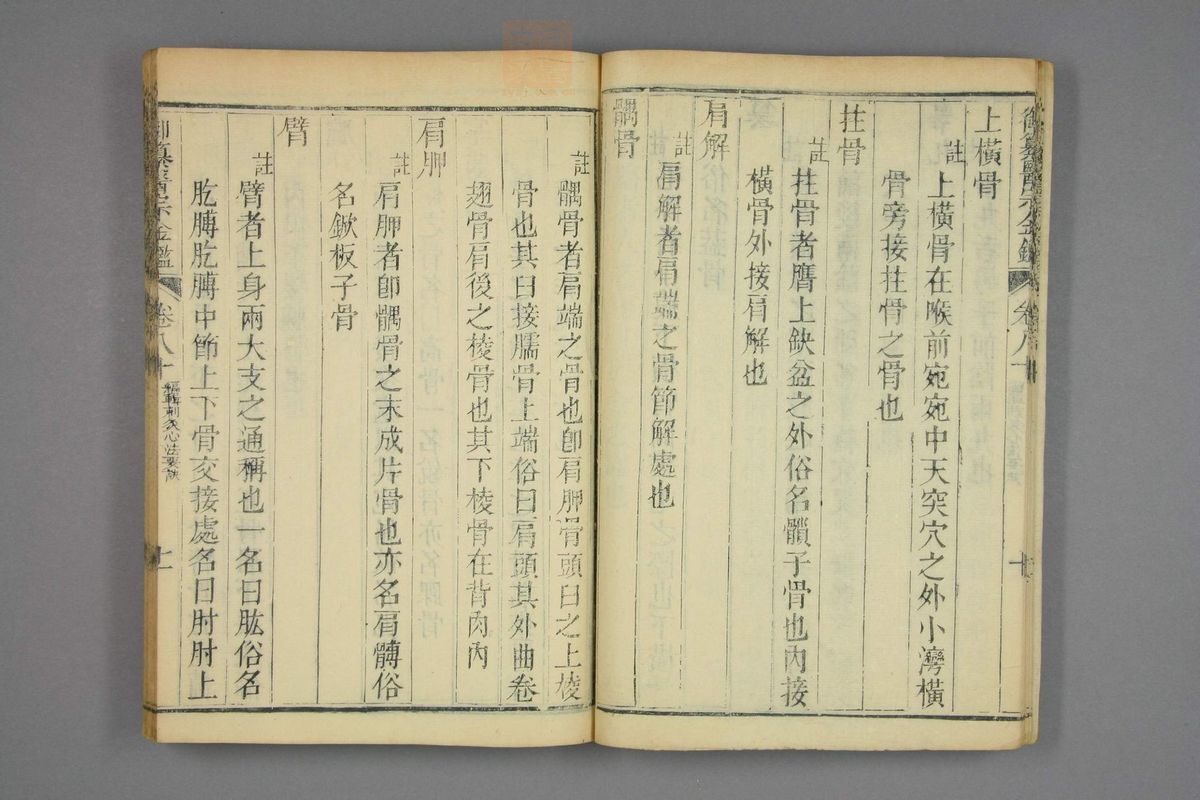 御纂醫宗金鑑
卷八十
十
上橫骨
註
上橫骨在喉前宛宛中天突穴之外小灣橫
骨旁接拄骨之骨也
拄骨
註
拄骨者膺上缺盆之外俗名鎖子骨也內接
橫骨外接肩解也
肩解
註
肩解者肩端之骨節解處也
髃骨
註
髃骨者肩端之骨也卽肩胛骨頭臼之上棱
骨也其臼接臑骨上端俗曰肩頭其外曲卷
翅骨肩後之棱骨也其下棱骨在背肉內
肩胛
註
肩胛者卽髃骨之末成片骨也亦名肩髆俗
名鍁板子骨
臂
註
臂者上身兩大支之通稱也一名曰肱俗名
肐膊肐膊中節上下骨交接處名曰肘肘上
御纂醫宗金鑑
卷八十
編輯刺灸心法要訣
十一